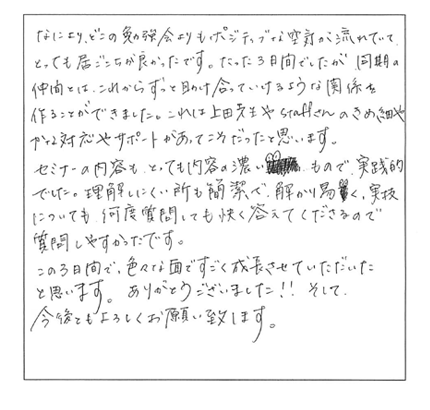 なにより、どこの勉強会よりもポジティブな空気が流れていて、
とっても居ごこちが良かったです。たった3日間でしたが 同期の
仲間とは、これからずっと助け合っていけるような関係を
作ることができました。これは上田先生やstaffさんのきめ細や
かな対応やサポートがあってこそだったと思います。
セミナーの内容も、とっても内容の濃い もので、実践的
でした。理解しにくい所も簡潔で、解かり易く、実技
についても 何度質問しても快く答えてくださるので
質問しやすかったです。
この3日間で、色々な面ですごく成長させていただいた
と思います。 ありがとうございました!! そして、
今後ともよろしくお願い致します。